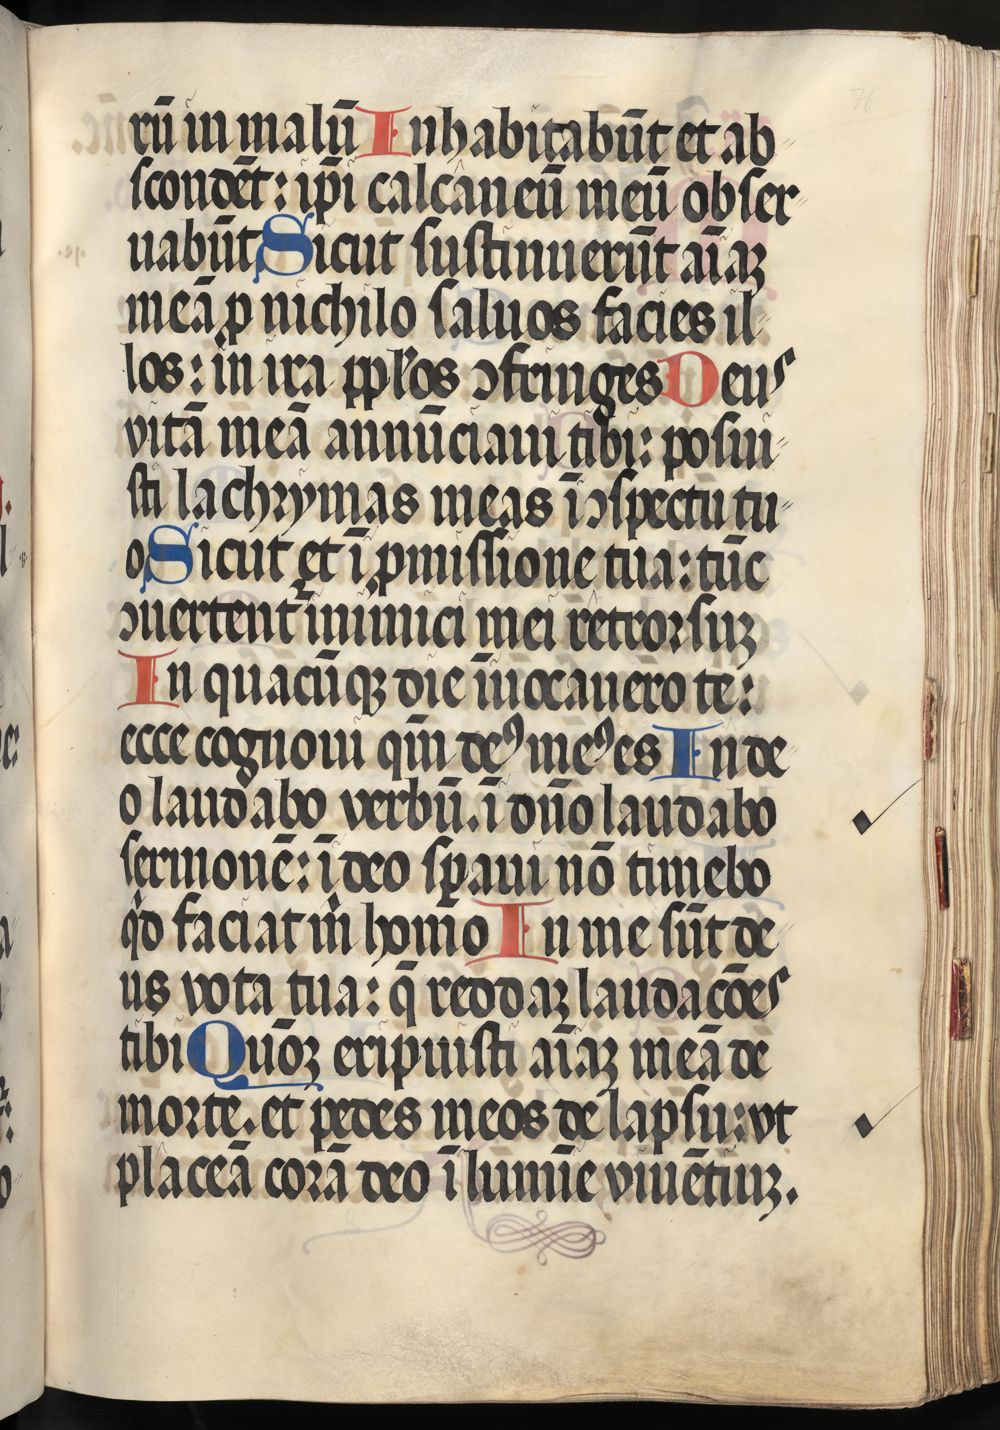 76
rū in malū Inhabitabūt et ab
scondēt: ip̄i calcaneū meū obser
uabūt Sicut sustinuerūt aīaꝫ
meā ꝓ nichilo saluos facies il
los: in ira pp̄l'os ↄfringes Deus
vitā meā annūciaui tibi: posui
sti lachrymas meas ī ↄspectu tu
o Sicut et ī ꝓmissione tua: tūc
ↄuertent᷑ inimici mei retrorsuꝫ
In quacūqꝫ die īuocauero te:
ecce cognoui qm̄ deꝰ meꝰ es In de
o laudabo verbū. ī dn̄o laudabo
sermonē: ī deo sꝑaui nō timebo
qd faciat m̄ homo In me sūt de
us vota tua: q̄ reddaꝫ laudacōes
tibi Quōꝫ eripuisti aīaꝫ meā de
morte. et pedes meos de lapsu: vt
placeā corā deo ī lumīe viuētiuꝫ.